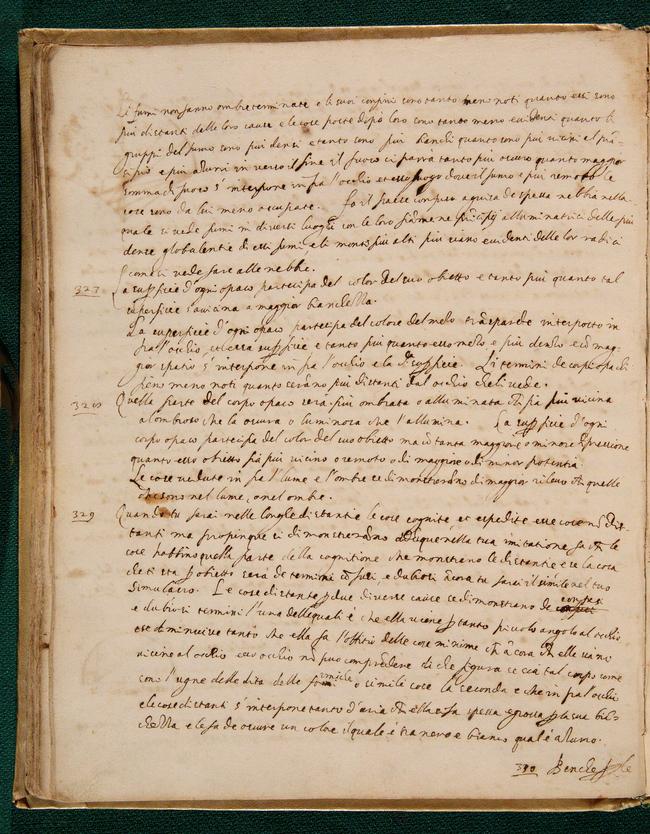 Li fumi non fanno ombre terminate e li suoi confini sono tanto meno noti quanto essi sono
più distanti delle loro cause e le cose poste dopò loro sono tanto meno evidenti quanto li
gruppi del fumo sono più densi e tanto sono più bianchi quanto sono più vicini al prin-
cipio e più azurri in verso il fine il fuoco ci parrà tanto più oscuro quanto maggior
somma di fumo s'interpone in fra l'occhio et esso fuogo dove il fumo è più remoto le
cose sono da lui meno occupate.
male si vede fumi in diversi luoghi con le loro fiamme alluminatrici delle più
dense globulentie di essi fumi e li monti più alti più siano evidenti delle lor radici
come si vede fare alle nebbie.
327 La superficie d'ogni opaco partecipa del color del suo obietto e tanto più quanto tal
superficie s'avicina a maggior bianchezza.
La superficie d'ogni opaco partecipa del colore del mezo trasparente interposto in
fra l'occhio et essa superficie e tanto più quanto esso mezo è più denso e con mag-
gior spatio s'interpone in fra l'occhio e la superficie. Li termini de corpi opachi
fieno meno noti quanto seranno più distanti dal occhio che li vede.
Quella parte del corpo opaco serà più ombrata o alluminata che fia più vicina
a l'ombroso che la oscura o luminoso che l'allumina. La superficie d'ogni
corpo opaco partecipa del color del suo obietto ma con tanta maggiore o minore impressione
quanto esso obietto fia più vicino o remoto o di maggiore o di minor potentia
Le cose vedute in fra l'lume e l'ombre se dimostreranno di maggior rilievo che quelle
che sono nel lume, o nel ombre.
329 Quando tu farai nelle longhe distantie le cose cognite et espedite esse cose non dis-
tanti ma propinque si dimostreranno adunque nella tua imitatione fa che le
cose habbino quella parte della cognitione che mostrano le distantie e se la cosa
che ti sta per obietto serà de termini confusi, e dubiosi ancora tu farai il simile nel tuo
simulacro. Le cose distante per due diverse cause se dimostrano de confusi
e dubiosi termini l'una delle quali è che ella viene per tanto piccolo angolo al occhio
e se diminuisce tanto che ella fa l'offitio delle cose minime che ancora che elle siano
vicine al occhio esso occhio non può comprendere di che figura se sia tal corpo come
sono l'ugne delle dita delle formiche o simile cose la seconda è che in fra l'occhio
e le cose distanti s'interpone tanto d'aria che ella si fa spessa e grossa
e le fa de oscure un colore il quale è tra nero e bianco qual è azurro.
330